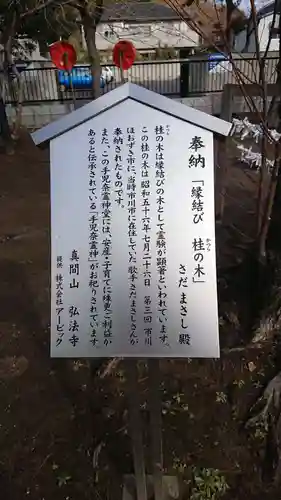 奉納 「縁結び 桂の木」
かつら
さだまさし殿
桂の木は縁結びの木として霊験が顕著といわれています。
かつら
この桂の木は昭和五十六年七月二十六日 第三回 市川
ほおずき市に、当時市川市に在住していた歌手さだまさしさんが
奉納されたものです。
また、この手児奈霊神堂には、安産・子育てに殊更ご利益が
あると伝承されている「手児奈霊神」がお祀りされています
真間山 弘法寺
提供 株式会社 アービック